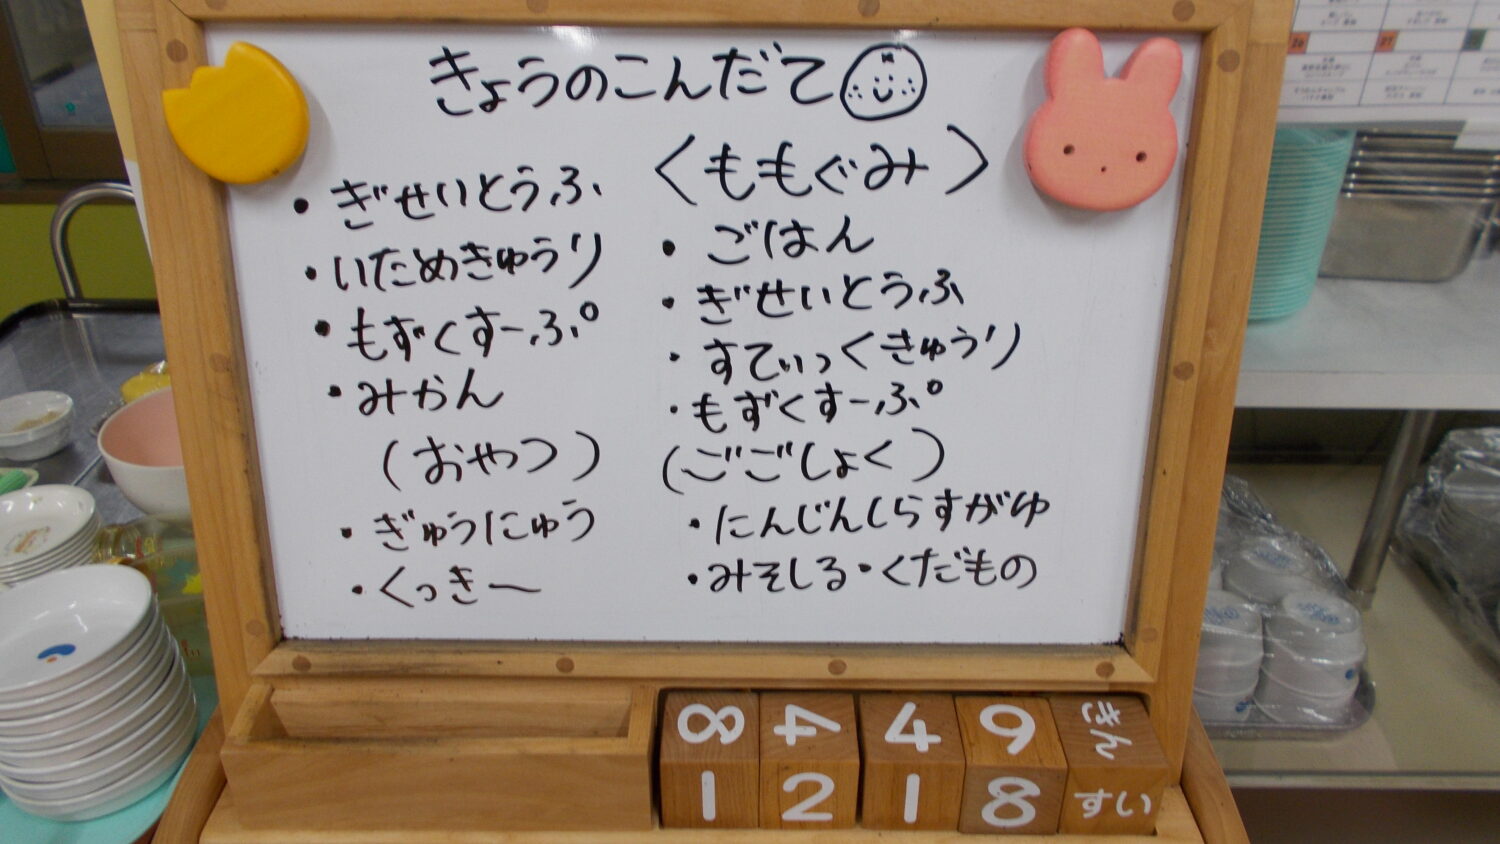 きょうのこんだて
・ぎせいとうふ
・いためきゅうり
・もずくすーぷ
・みかん
(おやつ)
・ぎゅうにゅう
・くっきー
〈ももぐみ〉
・ごはん
・ぎせいとうふ
・すてぃっくきゅうり
・もずくすーぷ
(ごごしょく)
・にんじんしらすがゆ
・みそしる・くだもの
8 4 4 9 きん
1 2 1 8 すい